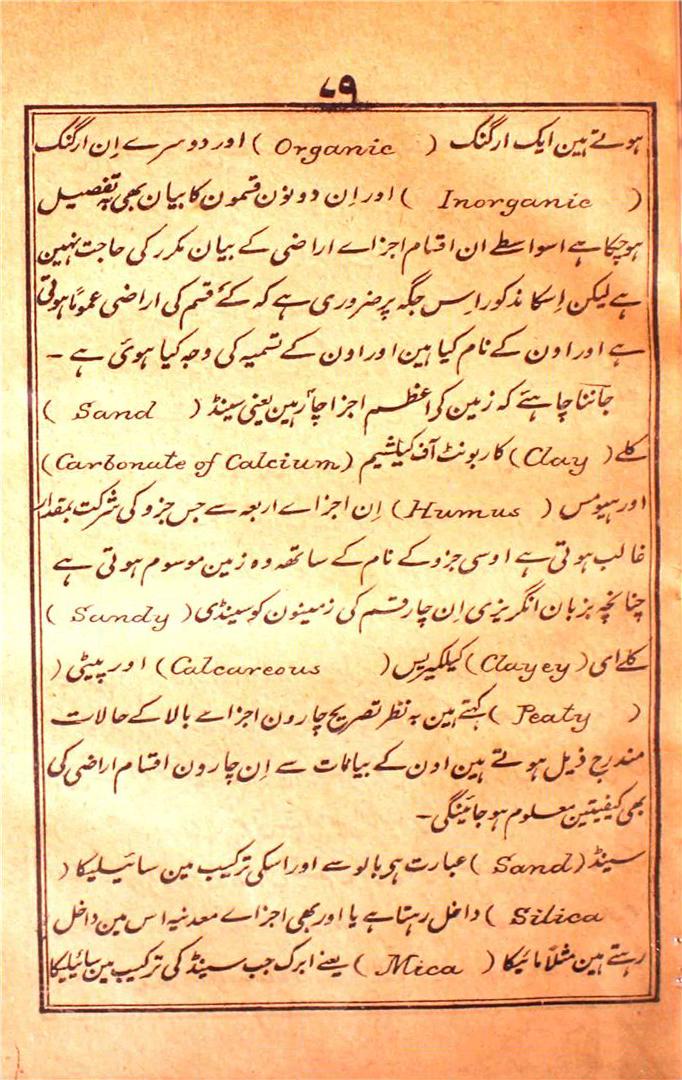 ۷۹
ہوتے ہین ایک ارگنک ( Organic ) اور دوسرے اِن ارگنک
( Inorganic ) اور اِن دونون قسمون کا بیان بھی بہ تفصیل
ہو چکا ہے اسواسطے ان اقسام اجزاے اراضی کے بیان مکرر کی حاجت نہین
ہے لیکن اِسکا مذکور اِس جگہ پر ضروری ہے کہ کے قسم کی اراضی عموماً ہوتی
ہے اور اون کے نام کیا ہین اور اون کے تسمیہ کی وجہ کیا ہوئی ہے ۔
جاننا چاہئے کہ زمین کی اعظم اجزا چار ہین یعنی سینڈ ( Sand )
کلے ( Clay ) کاربونٹ آف کیلشیم ( Carbonate of Calcium )
اور ہیومس ( Humus ) اِن اجزاے اربعہ سے جس جزو کی شرکت بمقدار
غالب ہوتی ہے اوسی جزو کے نام کے ساتھہ وہ زمین موسوم ہوتی ہے
چنانچہ بزبان انگریزی اِن چار قسم کی زمینون کو سینڈی ( Sandy )
کلے ای ( Clayey ) کیلکیریس ( Calcareous ) اور پیٹی (
( Peaty ) کہتے ہین بہ نظر تصریح چارون اجزاے بالا کے حالات
مندرج ذیل ہوتے ہین اون کے بیانات سے اِن چارون اقسام اراضی کی
بھی کیفیتین معلوم ہو جائینگی ۔
سینڈ ( Sand ) عبارت ہی بالو سے اور اسکی ترکیب مین سائیلیکا (
Silica ) داخل رہتا ہے یا اور بھی اجزاے معدنیہ اس مین داخل
رہتے ہین مثلاً مائیکا ( Mica ) یعنے ابرک جب سینڈ کی ترکیب مین سائیلیکا